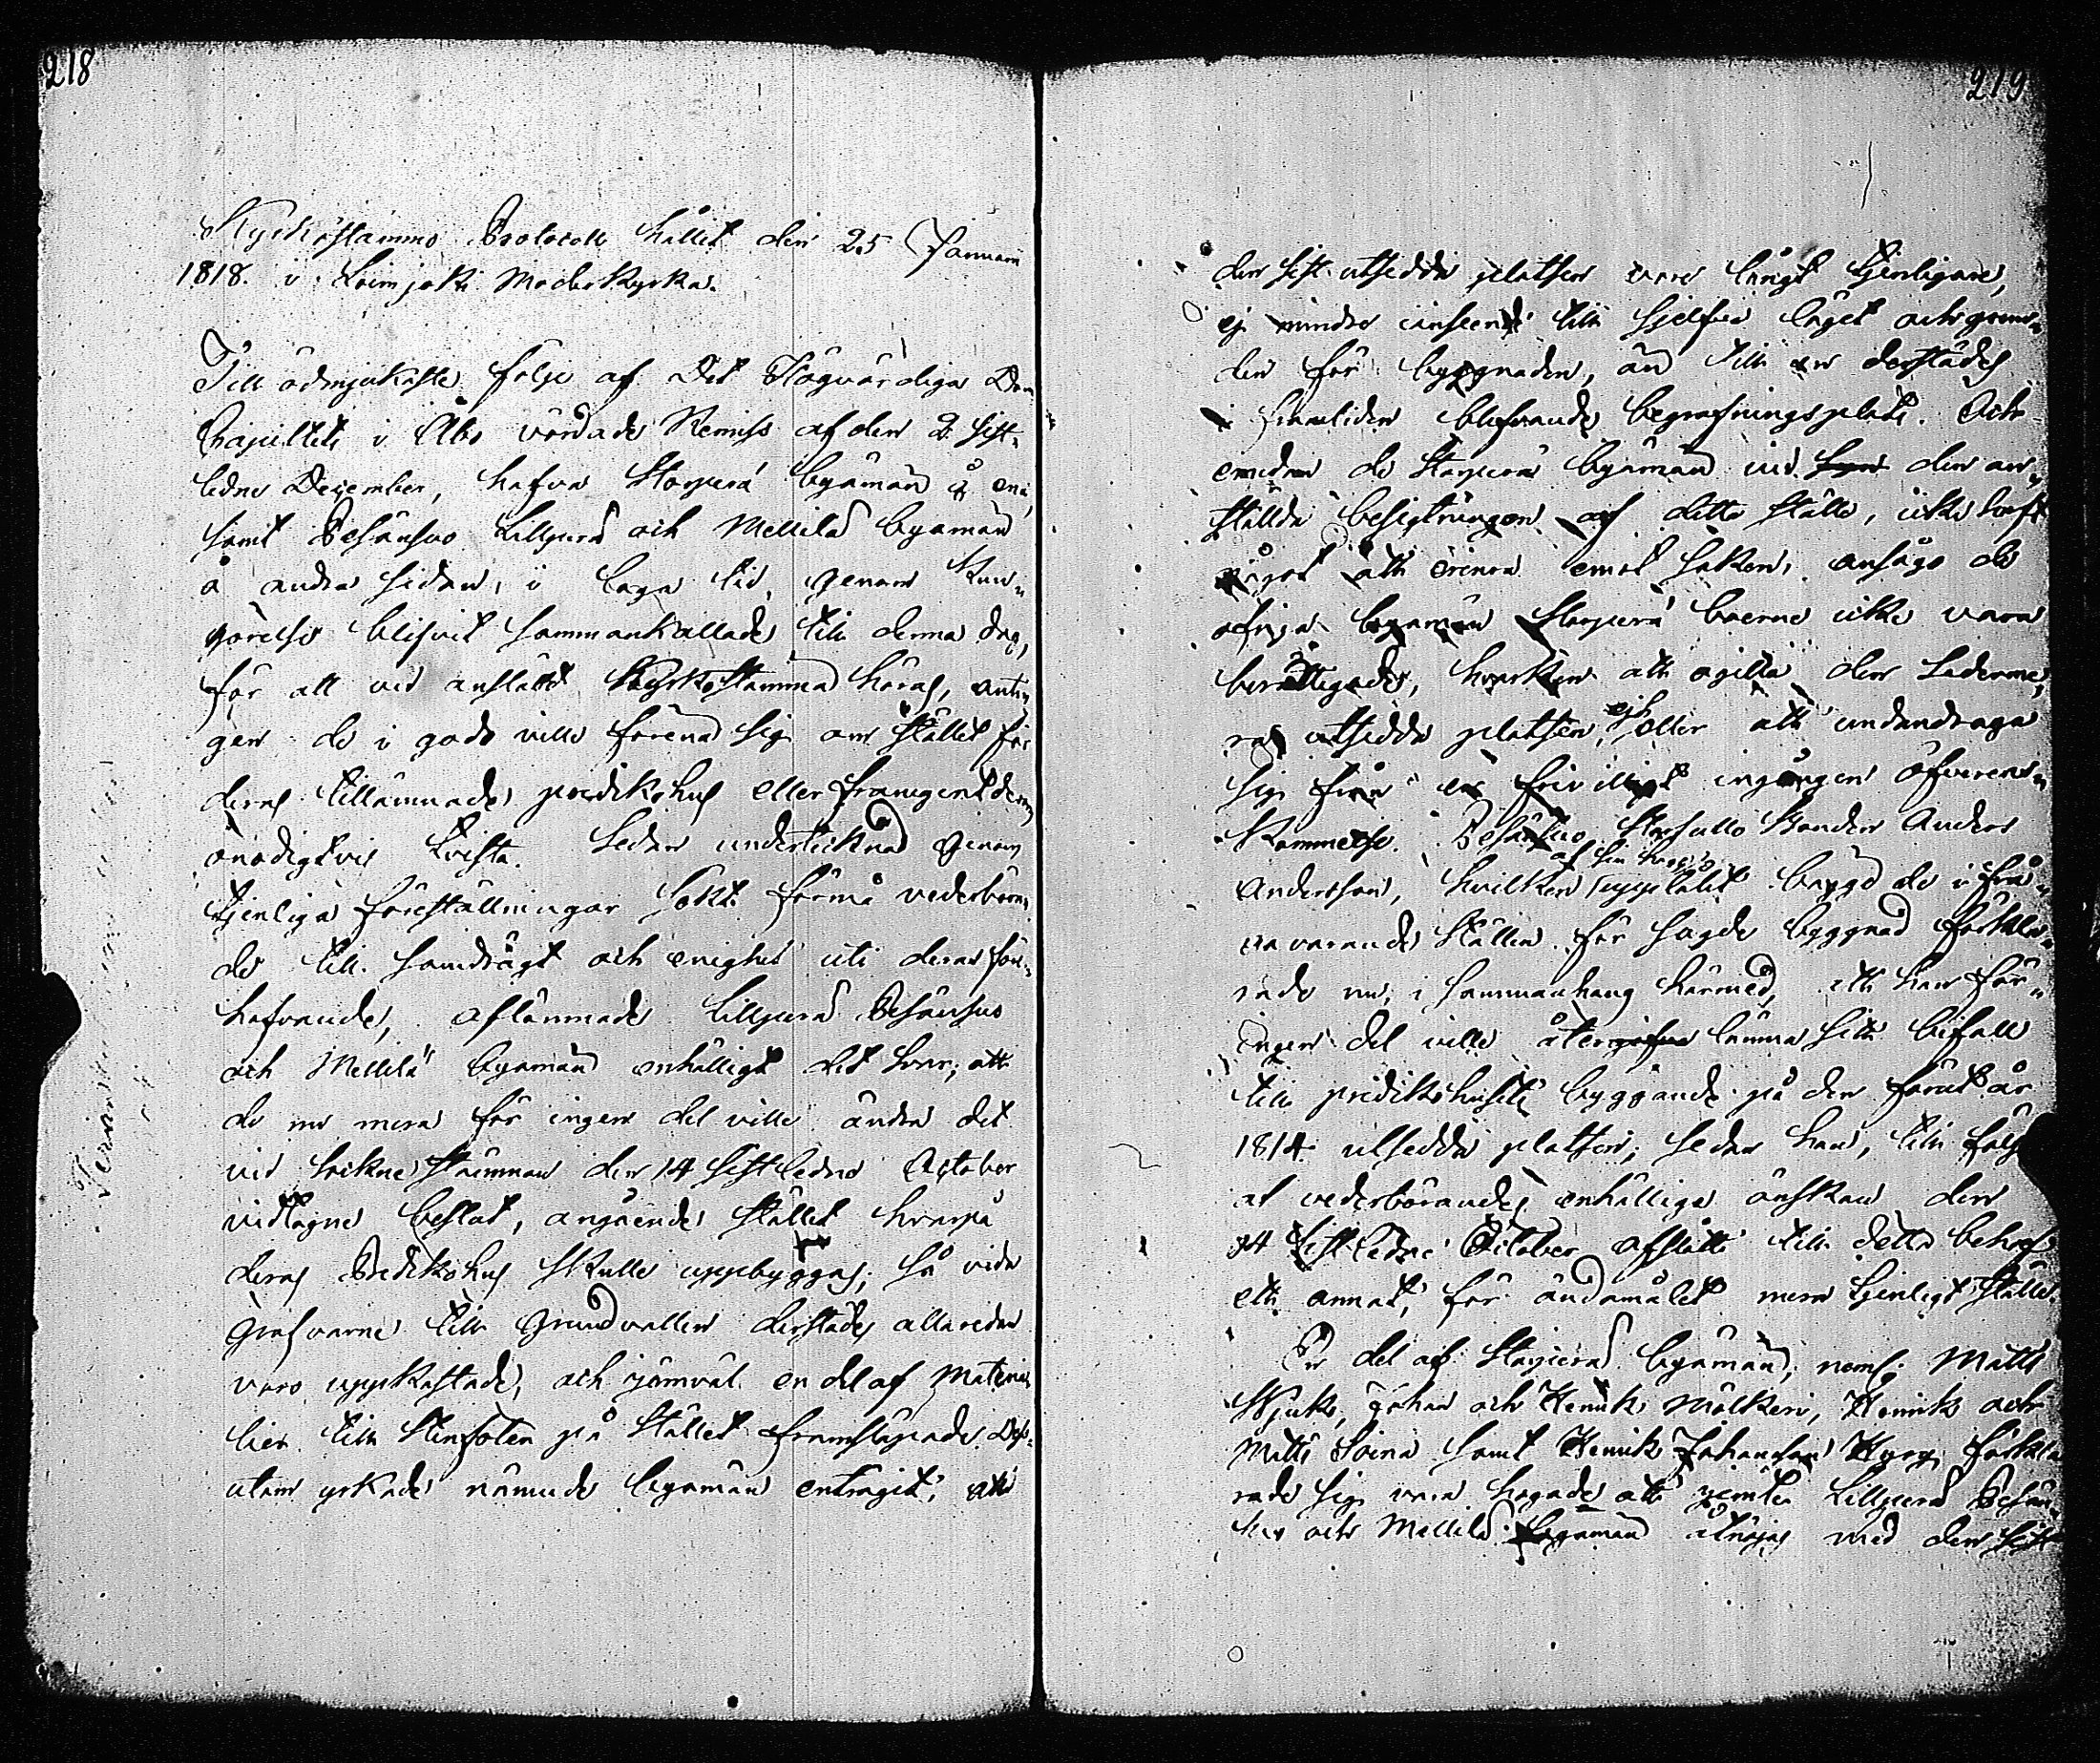 218
Kyrkostämmo Protocoll hållit den 25 Januarii
1818. i Loimjoki Moderkyrka.
Till ödmjukaste följe af Det Högvördiga Dom
Capitlets i Åbo vördade Remiss af den 2 sist-
ledne December, hafva Storperä byamän å ena,
samt Pesänsuo Lillperä och Mellilä byamän
å andra sidan, i laga tid, genom Kun-
görelse blifvit sammankallade till denna dag,
för att vid anstäld Kyrkostämma höras, antin-
gen de i godo ville förena sig om stället för
deras tillämnade predikohus eller framgent derom
onödigtvis tvista. Sedan undertecknad genom
tjenliga föreställningar sökt förmå vederböran-
de till samdrägt och enighet uti deras före-
hafvande, aflämnade Lillperä Pesänsuo
och Mellilä byamän enhälligt det svar; att
de nu mera för ingen del ville ändra det
vid Sockne stämman den 14 sistledne October
vidtagne beslut, angående stället hvarpå
deras Predikohus skulle uppbyggas; så vida
grafvarne till Grundvallen derstädes allaredan
voro uppkastade, och jämväl en del af Materia-
lier till Stenfoten på stället framsläpade. Dess-
utom yrkade nämnde byamän enträgit, att
219
den sist utsedda platsen vore långt tjenligare,
ej mindre i anseende till sjelfva läget och grun-
den för byggnaden, än till en derstädes
i framtiden blifvande begrafningsplats. Och
emedan de Storperä byamän vid den an-
ställda besigtningen af detta ställe, icke haft
något att erinra emot saken, ansågo de
öfriga byamän Storperä boerne icke vara
berättigade, hvarken att ogilla den Ledermera
utsedda platsen, ej heller att undandraga
sig från en frivilligt ingången öfverens-
kommelse. Pesänsuo Bonden Anders
Andersson, hvilken af sin upplåtit bägge de i frå-
ga varande ställen för sagde byggnad förkla-
rade nu, i sammanhang härmed, att han för
ingen del ville återgifva lämna sitt bifall
till predikohusets byggande på den förut år
1814 utsedda platsen; sedan han, till följe
af vederbörandes enhälliga önskan den
14 sistledne October afstått till detta behof
ett annat, för ändamålet mera tjenligt ställe.
En del af Storperä byamän, neml. Matts
Skjuko, Johan och Henrik Mälkeri, Henrik och
Matts Soini samt Henrik Johansson Kyrö förkla-
rade sig vara hågade att jemte Lillperä Pesän-
suo och Mellilä byamän åtnöjas med den sist